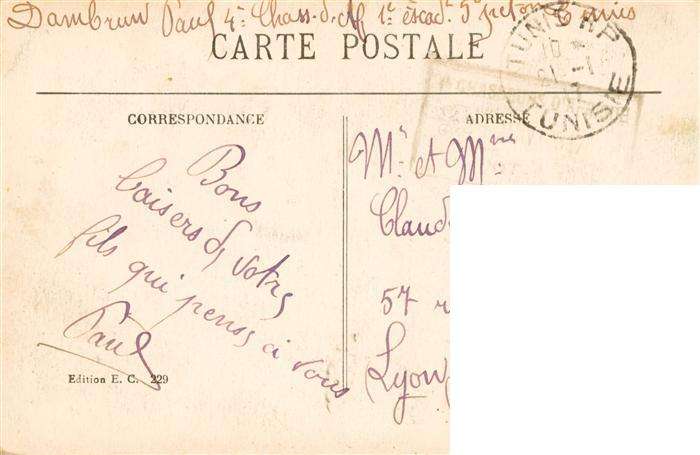 Dambrun Paul 4e Chass. d. Af 1e escad. 5e peton Tunis
CARTE POSTALE
TUNIS R.P
TUNISIE
CORRESPONDANCE
ADRESSE
Bons
baisers de votre
fils qui pense à vous
Paul
Mr et Mme
Claud
57 r
Lyon
Edition E. C. 229